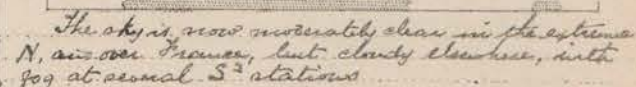 The sky is now moderately clear in the extreme
N, and over France, but cloudy elsewhere, with
fog at several Sn stations